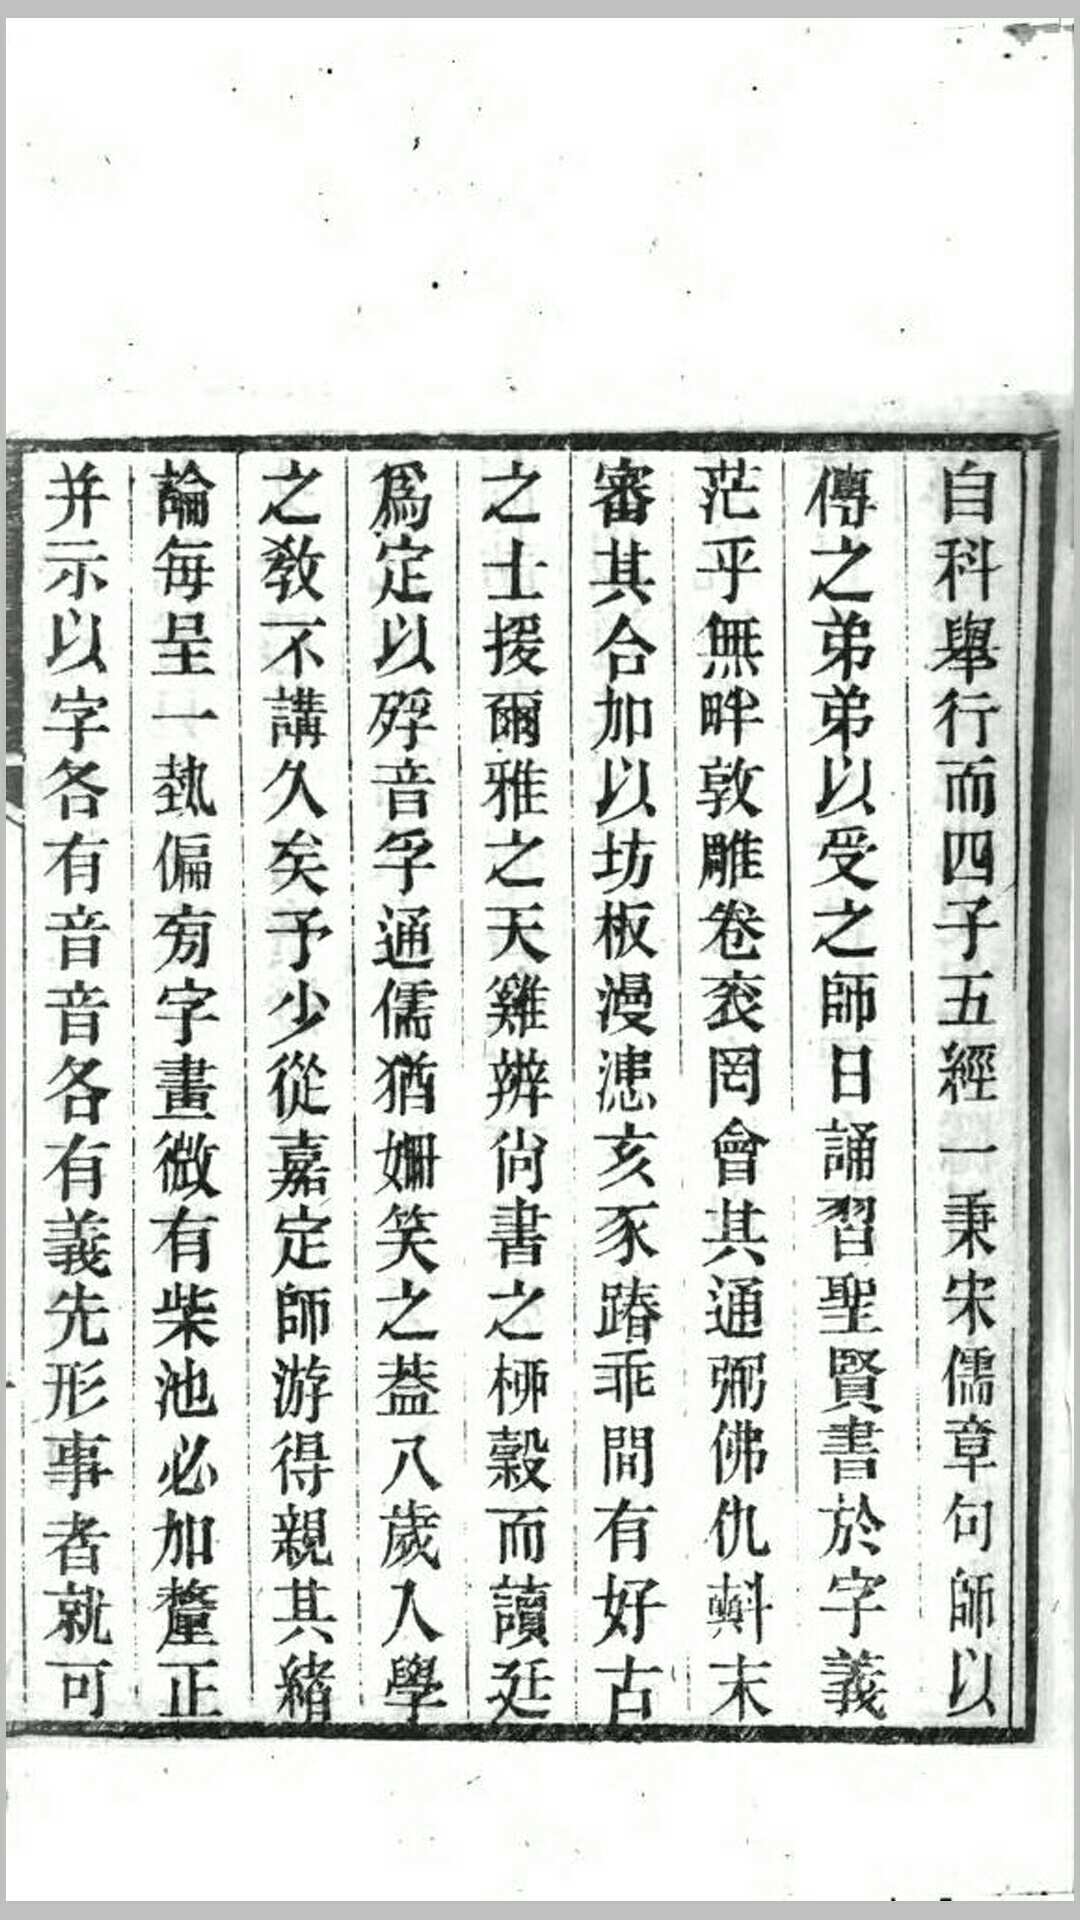 自科舉行而四子五經一秉宋儒章句師以
傳之弟弟以受之師日誦習聖賢書於字義
茫乎無畔敦雕卷袠罔會其通弼佛仇㪺末
審其合加以坊板漫漶亥豕踳乖間有好古
之士援爾雅之天雞辨尙書之桺穀而讀廷
爲定以殍音孚通儒猶姍笑之葢八歲入學
之敎不講久矣予少從嘉定師游得親其緖
論每呈一埶偏㫄字畫微有柴池必加釐正
并示以字各有音音各有義先形事者就可